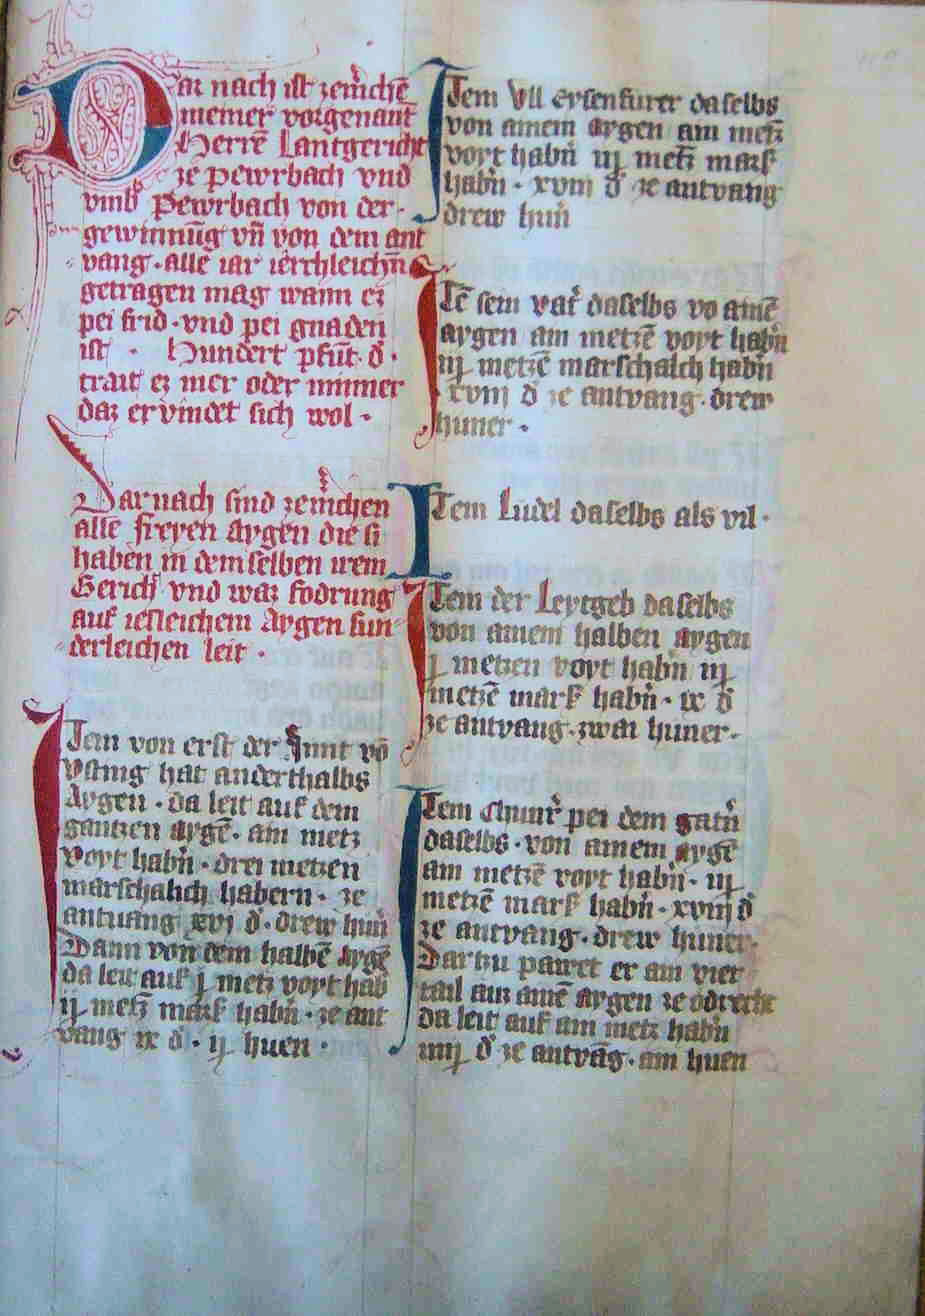 Dar nach ist zem̄chē
meiner vorgenant
Herrē Lantgericht
ze pewrbach vnd
vmb Pewrbach von der
gewinnūg vn̄ von dem ant
vang · alle iar
getragen mag wann ez
pei frid · vnd pei gnaden
ist · Hundert pfūt d̄ ·
trait ez mer oder minner
daz ervindet sich wol ·
Dar nach sind zem̄chen
alle freyen Aygen die si
haben in dem selben irem
Gericht vnd waz fodrung
auf iesleichem Aygen sun
derleichen leit ·
Item von erst der vō
hat anderthalbs
Aygen · da leit auf dem
gantzen aygē · ain metz
voyt habn̄ · drei metzen
marschalich habern · ze
antuang xvj d̄ · drew hūn̄
Dann von dem halbē aygē
da leit auf j metz voyt hab
ij metz̄ mark habn̄ · ze ant
vang ix d̄ · ij huen ·
Item Vll eysenfurer daselbs
von ainem aygen ain metz̄
voyt habn̄ iij metz̄ mark
habn̄ · xviij d̄ ze antvang
drew hun̄
Itē sein vat̄ daselbs vō ainē
aygen ain metzē voyt habn̄
iij metzē marschalch habn̄
xviij d̄ ze antvang · drew
huner ·
Item Liudel daselbs als vil ·
Item der Leytgeb daselbs
von ainem halben aygen
j metzen voyt habn̄ iij
metzē mark habn̄ · ix d̄
ze antvang · zwai huner ·
Item Chunr̄ pei dem gatn̄
daselbs · von ainem aygē
ain metzē voyt habn̄ · iij
metzē mark habn̄ · xviij d̄
ze antvang · drew huner ·
Dartzu pawet er ain vier
tail auz ainē aygen ze
da leit auf ain metz habn̄
iiij d̄ ze antvāg · ain huen